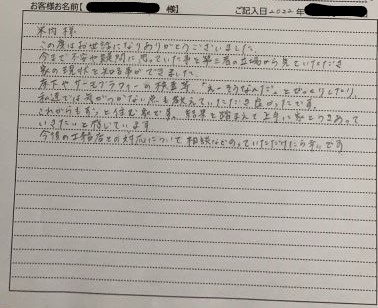 お客様お名前【 様】 ご記入日 2022年
米内 様
この度はお世話になりありがとうございました。
今まで不安や疑問に思っていた事を第三者の立場から見ていただき
家の現状を知る事ができました。
床下やサーモグラフィーの検査等、"えーそうなんだ"とびっくりしたり、
私達では気がつかない点も教えていただき良かったです。
これからもずっと住む家です。結果を踏まえて上手に家とつきあって
いきたいと感じています
今後の工務店との対応について相談などのっていただけたら幸いです